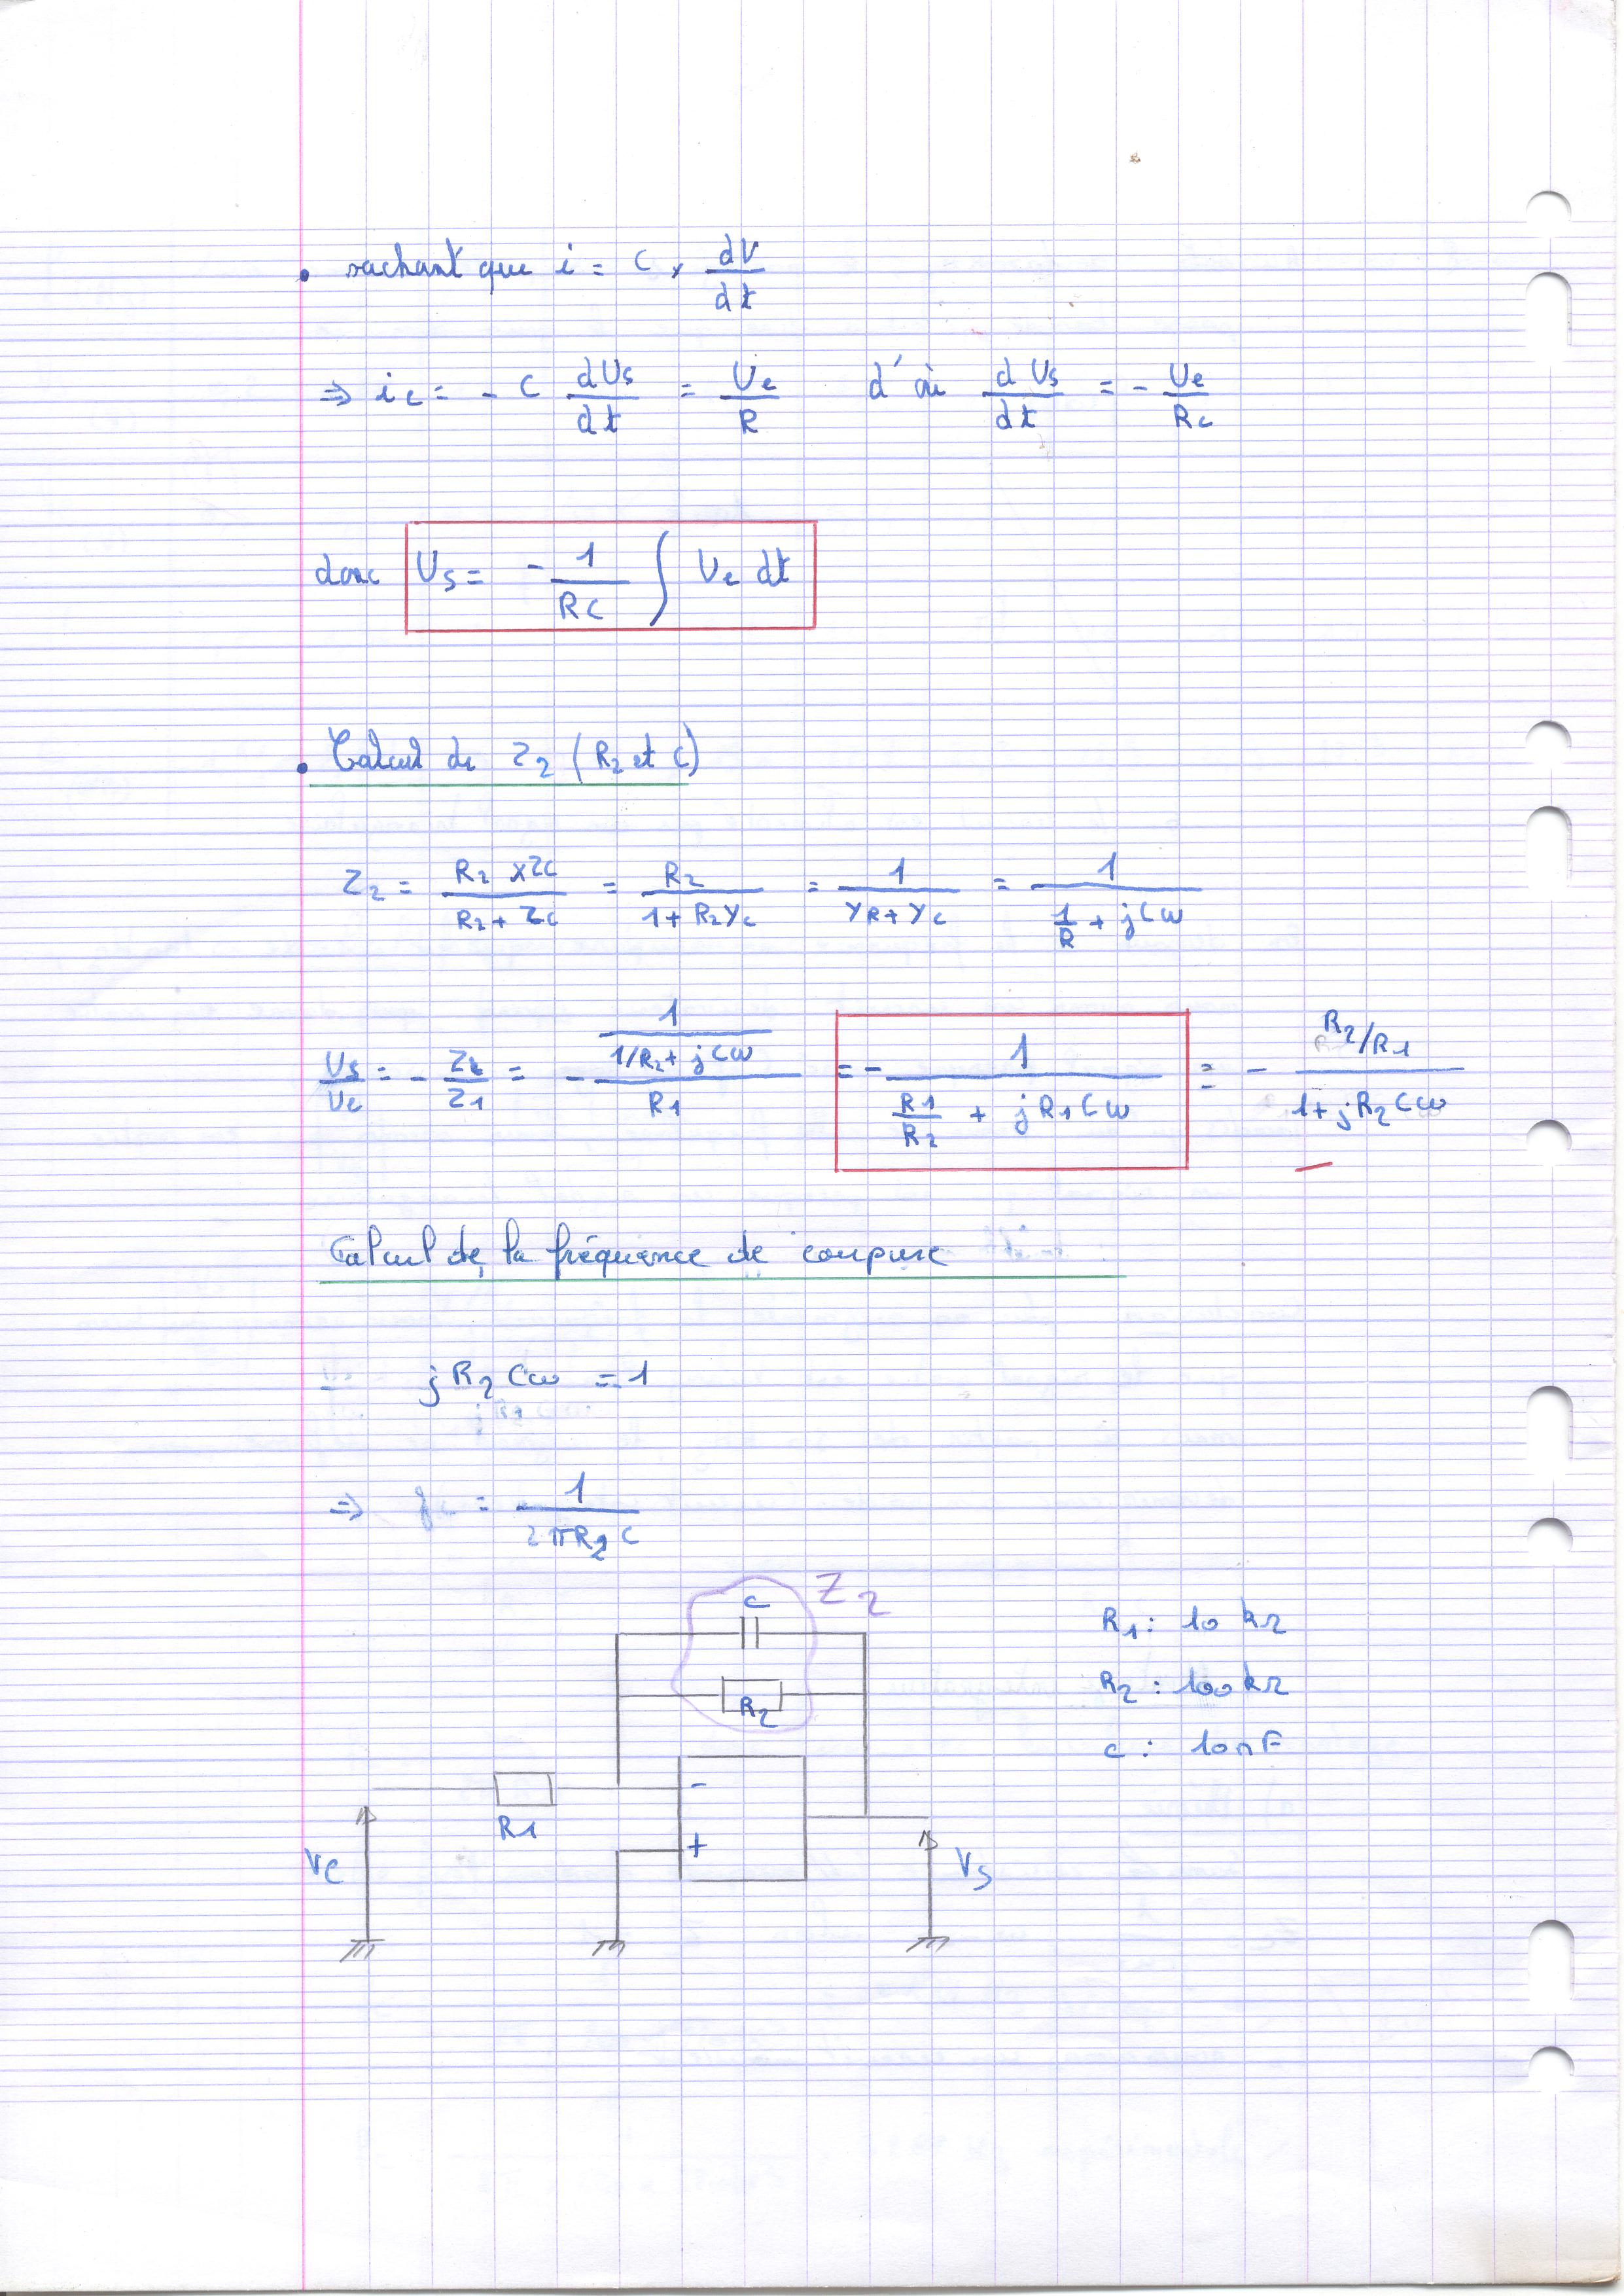 • sachant que i = C × dV/dt
⇒ ic = - C dUs/dt = Ue/R d'où dUs/dt = - Ue/RC
donc Us = - 1/RC ∫ Ue dt
• Calcul de Z2 (R2 et C)
Z2 = R2 × Zc / R2 + Zc = R2 / 1 + R2Yc = 1 / YR + Yc = 1 / 1/R + jCω
Us/Ue = - Z2/Z1 = - 1/(1/R2 + jCω) / R1 = - 1 / R1/R2 + jR1Cω = - R2/R1 / 1 + jR2Cω
Calcul de la fréquence de coupure
jR2Cω = 1
⇒ fc = 1 / 2πR2C
Z2
C
R2
R1 : 10 kΩ
R2 : 100 kΩ
C : 10nF
-
R1
+
Ve
Vs